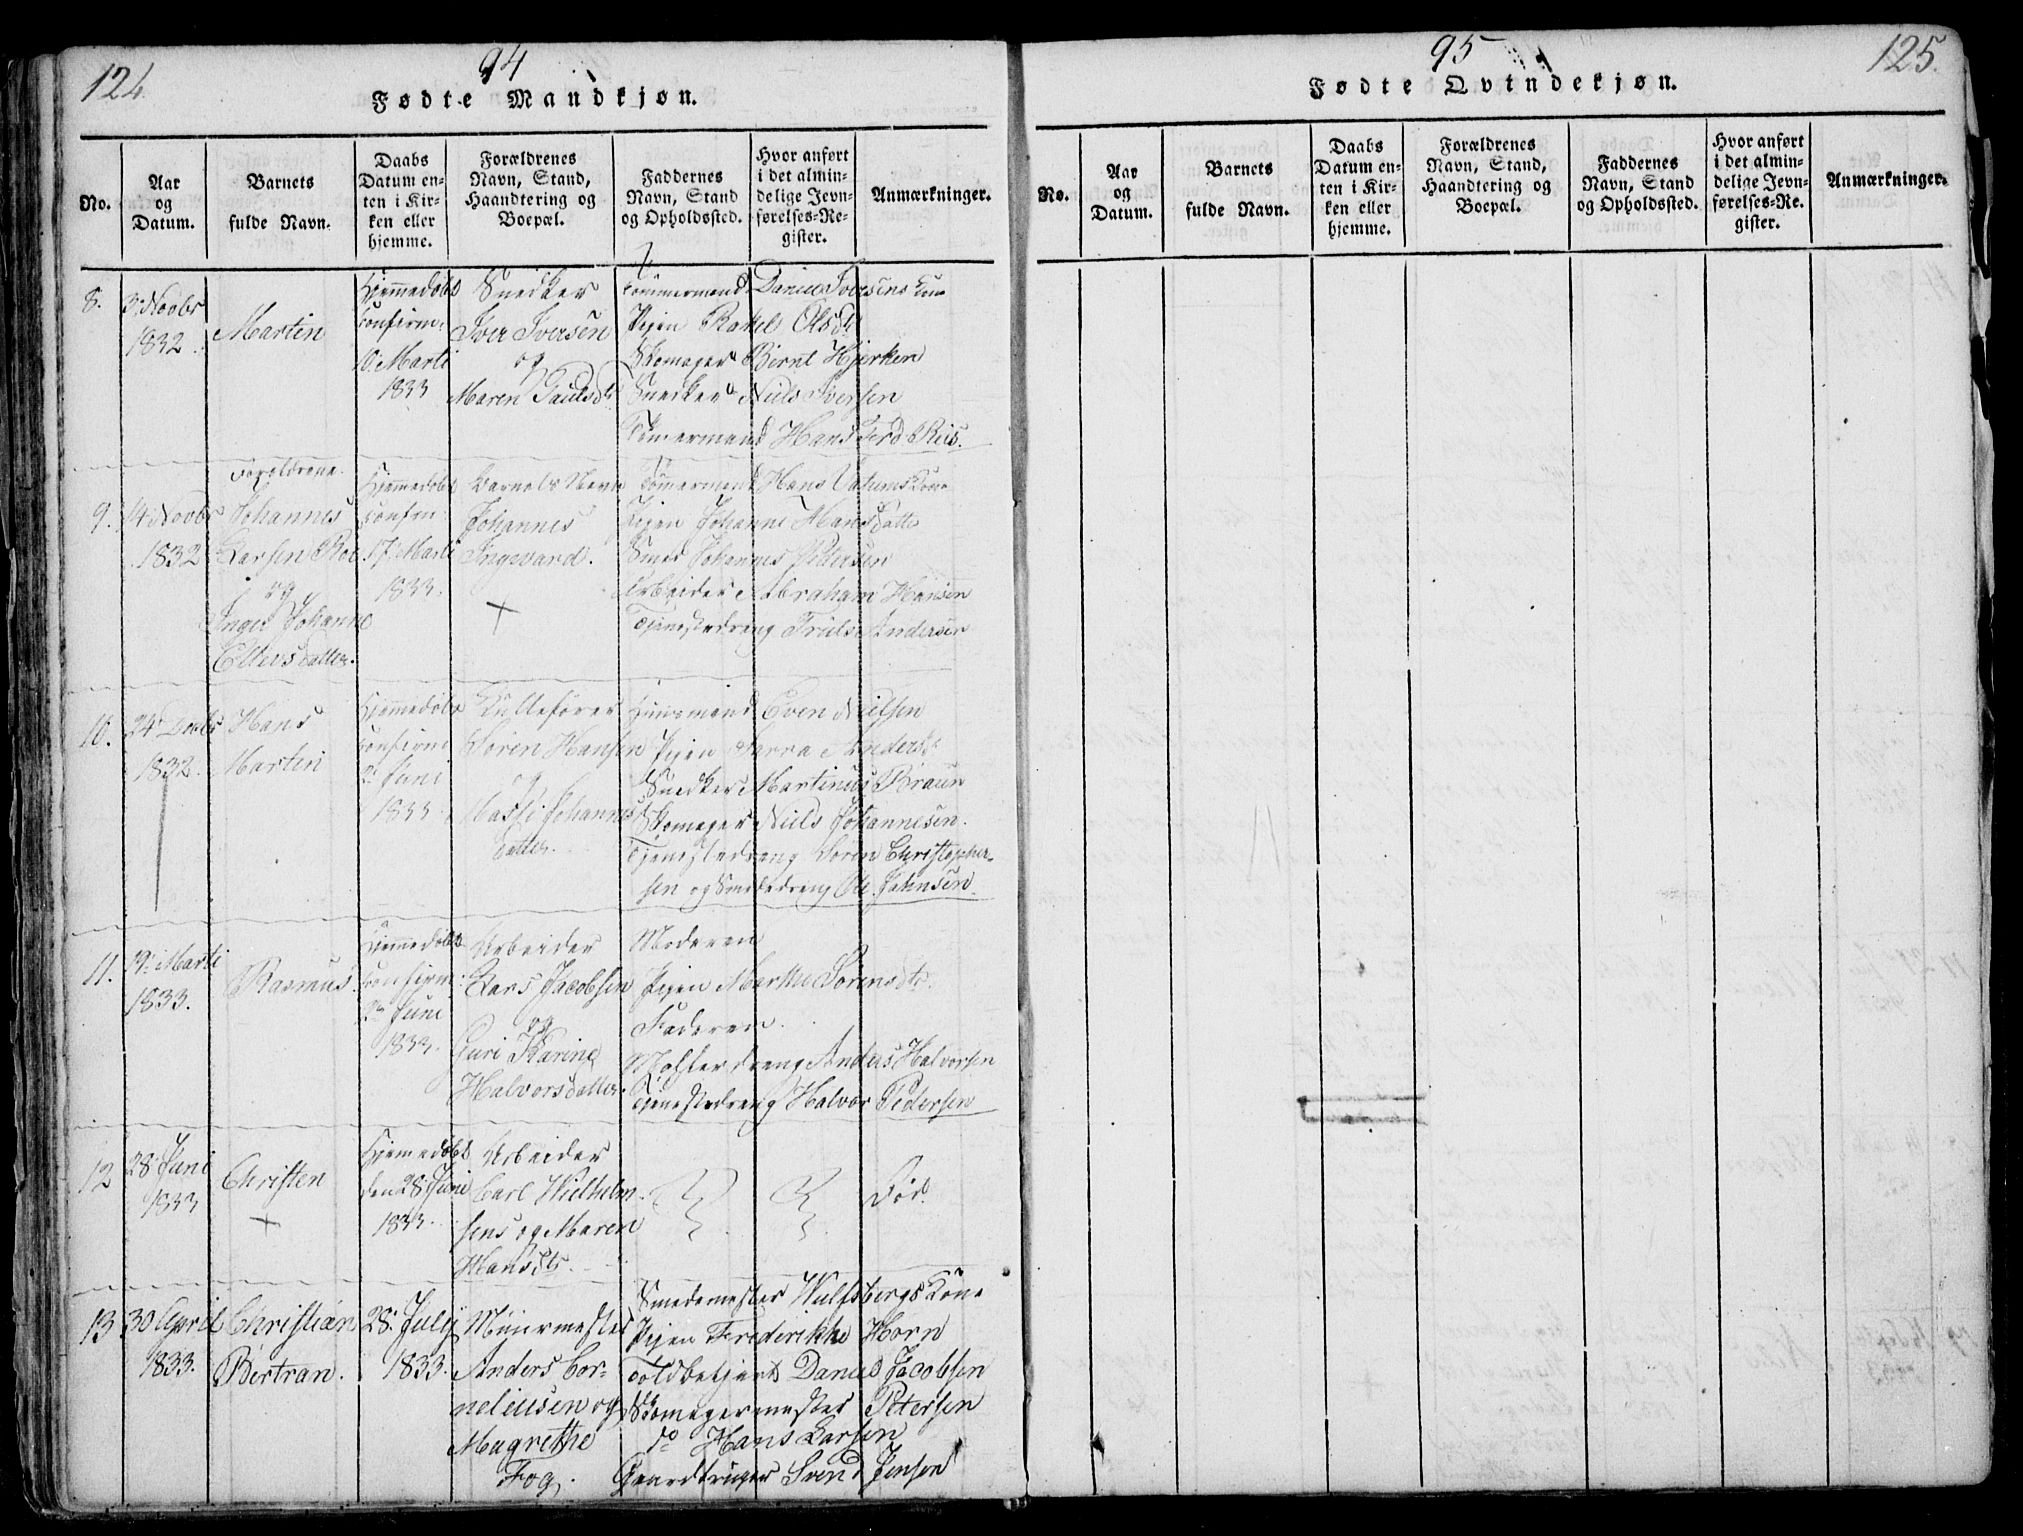 124.
94
Fødte Mandkjøn.
No.
Aar og Datum.
Barnets fulde Navn.
Daabs Datum enten i Kirken eller hjemme.
Forældrenes Navn, Stand, Haandtering og Boepæl.
Faddernes Navn, Stand og Opholdssted.
Hvor anført i det almindelige Jevnførelses-Register.
Anmærkninger.
8.
3: Novbr
1832.
Martin
Hjemmedøbt
Confirm:
10: Marti
1833
Snedker
Iver Iversen
og
Maren Paulsd:
Tømmermand Daniel Iversens Kone
Pigen Rakel Olsd:
Skomager Bernt Hjerken
Snedker Niels Iversen
Tømmermand Hans Ferd. Reis.
9.
14 Novbr
1832
Forældrene
Johannes
Larsen Roe
og
Inger Johanne
Ellevsdatter.
Hjemmedøbt
Confirm:
17: Marti
1833.
Barnets Navn
Johannes
Ingvard.
Tømmermand Hans Kone
Pigen Johanne Hansdatter
Smed Johannes Pedersen
Arbeider Abraham Hansen
Tjenestedreng Truls Andersen
10.
24 Decbr
1832.
Hans
Martin
Hjemmedøbt
Confirm:
2: Juni
1833.
Kullefører
Søren Hansen
og
Massi Johannes
datter.
Huusmand Even Nielsen
Pigen Sarra Andersd:
Snedker Martinus Braun
Skomager Niels Johannesen.
Tjenestedreng Søren Christopher-
sen og Smededreng Ole Johnsen.
11.
19: Marti
1833.
Rasmus.
Hjemmedøbt
Confirm:
2: Juni
1833.
Arbeider
Lars Jacobsen
og
Guri Karine
Halvorsdatter.
Moderen
Pigen Marthe Sørensd:
Faderen.
Anders Halvorsen
Tjenestedreng Halvor Pedersen
12
28: Juni
1833
Christen
Hjemmedøbt
den 28: Juni
1833.
Arbeider
Carl Wilhelm-
sens og Maren
Hansd:
Død.
13
30 April
1833.
Christian
Bertran.
28: July
1833.
Muurmester
Anders Cor-
neliusen og
Magrethe
Fog.
Smedemester Wulfsbergs Kone
Pigen Frederikke Horn
Toldbetjent Daniel Jacobsen
Skomagermester Petersen
do Hans Larsen
Gaardbruger Svend Jensen
95
125.
Fødte Qvindekjøn.
No.
Aar og Datum.
Barnets fulde Navn.
Daabs Datum enten i Kirken eller hjemme.
Forældrenes Navn, Stand, Haandtering og Boepæl.
Faddernes Navn, Stand og Opholdssted.
Hvor anført i det almindelige Jevnførelses-Register.
Anmærkninger.